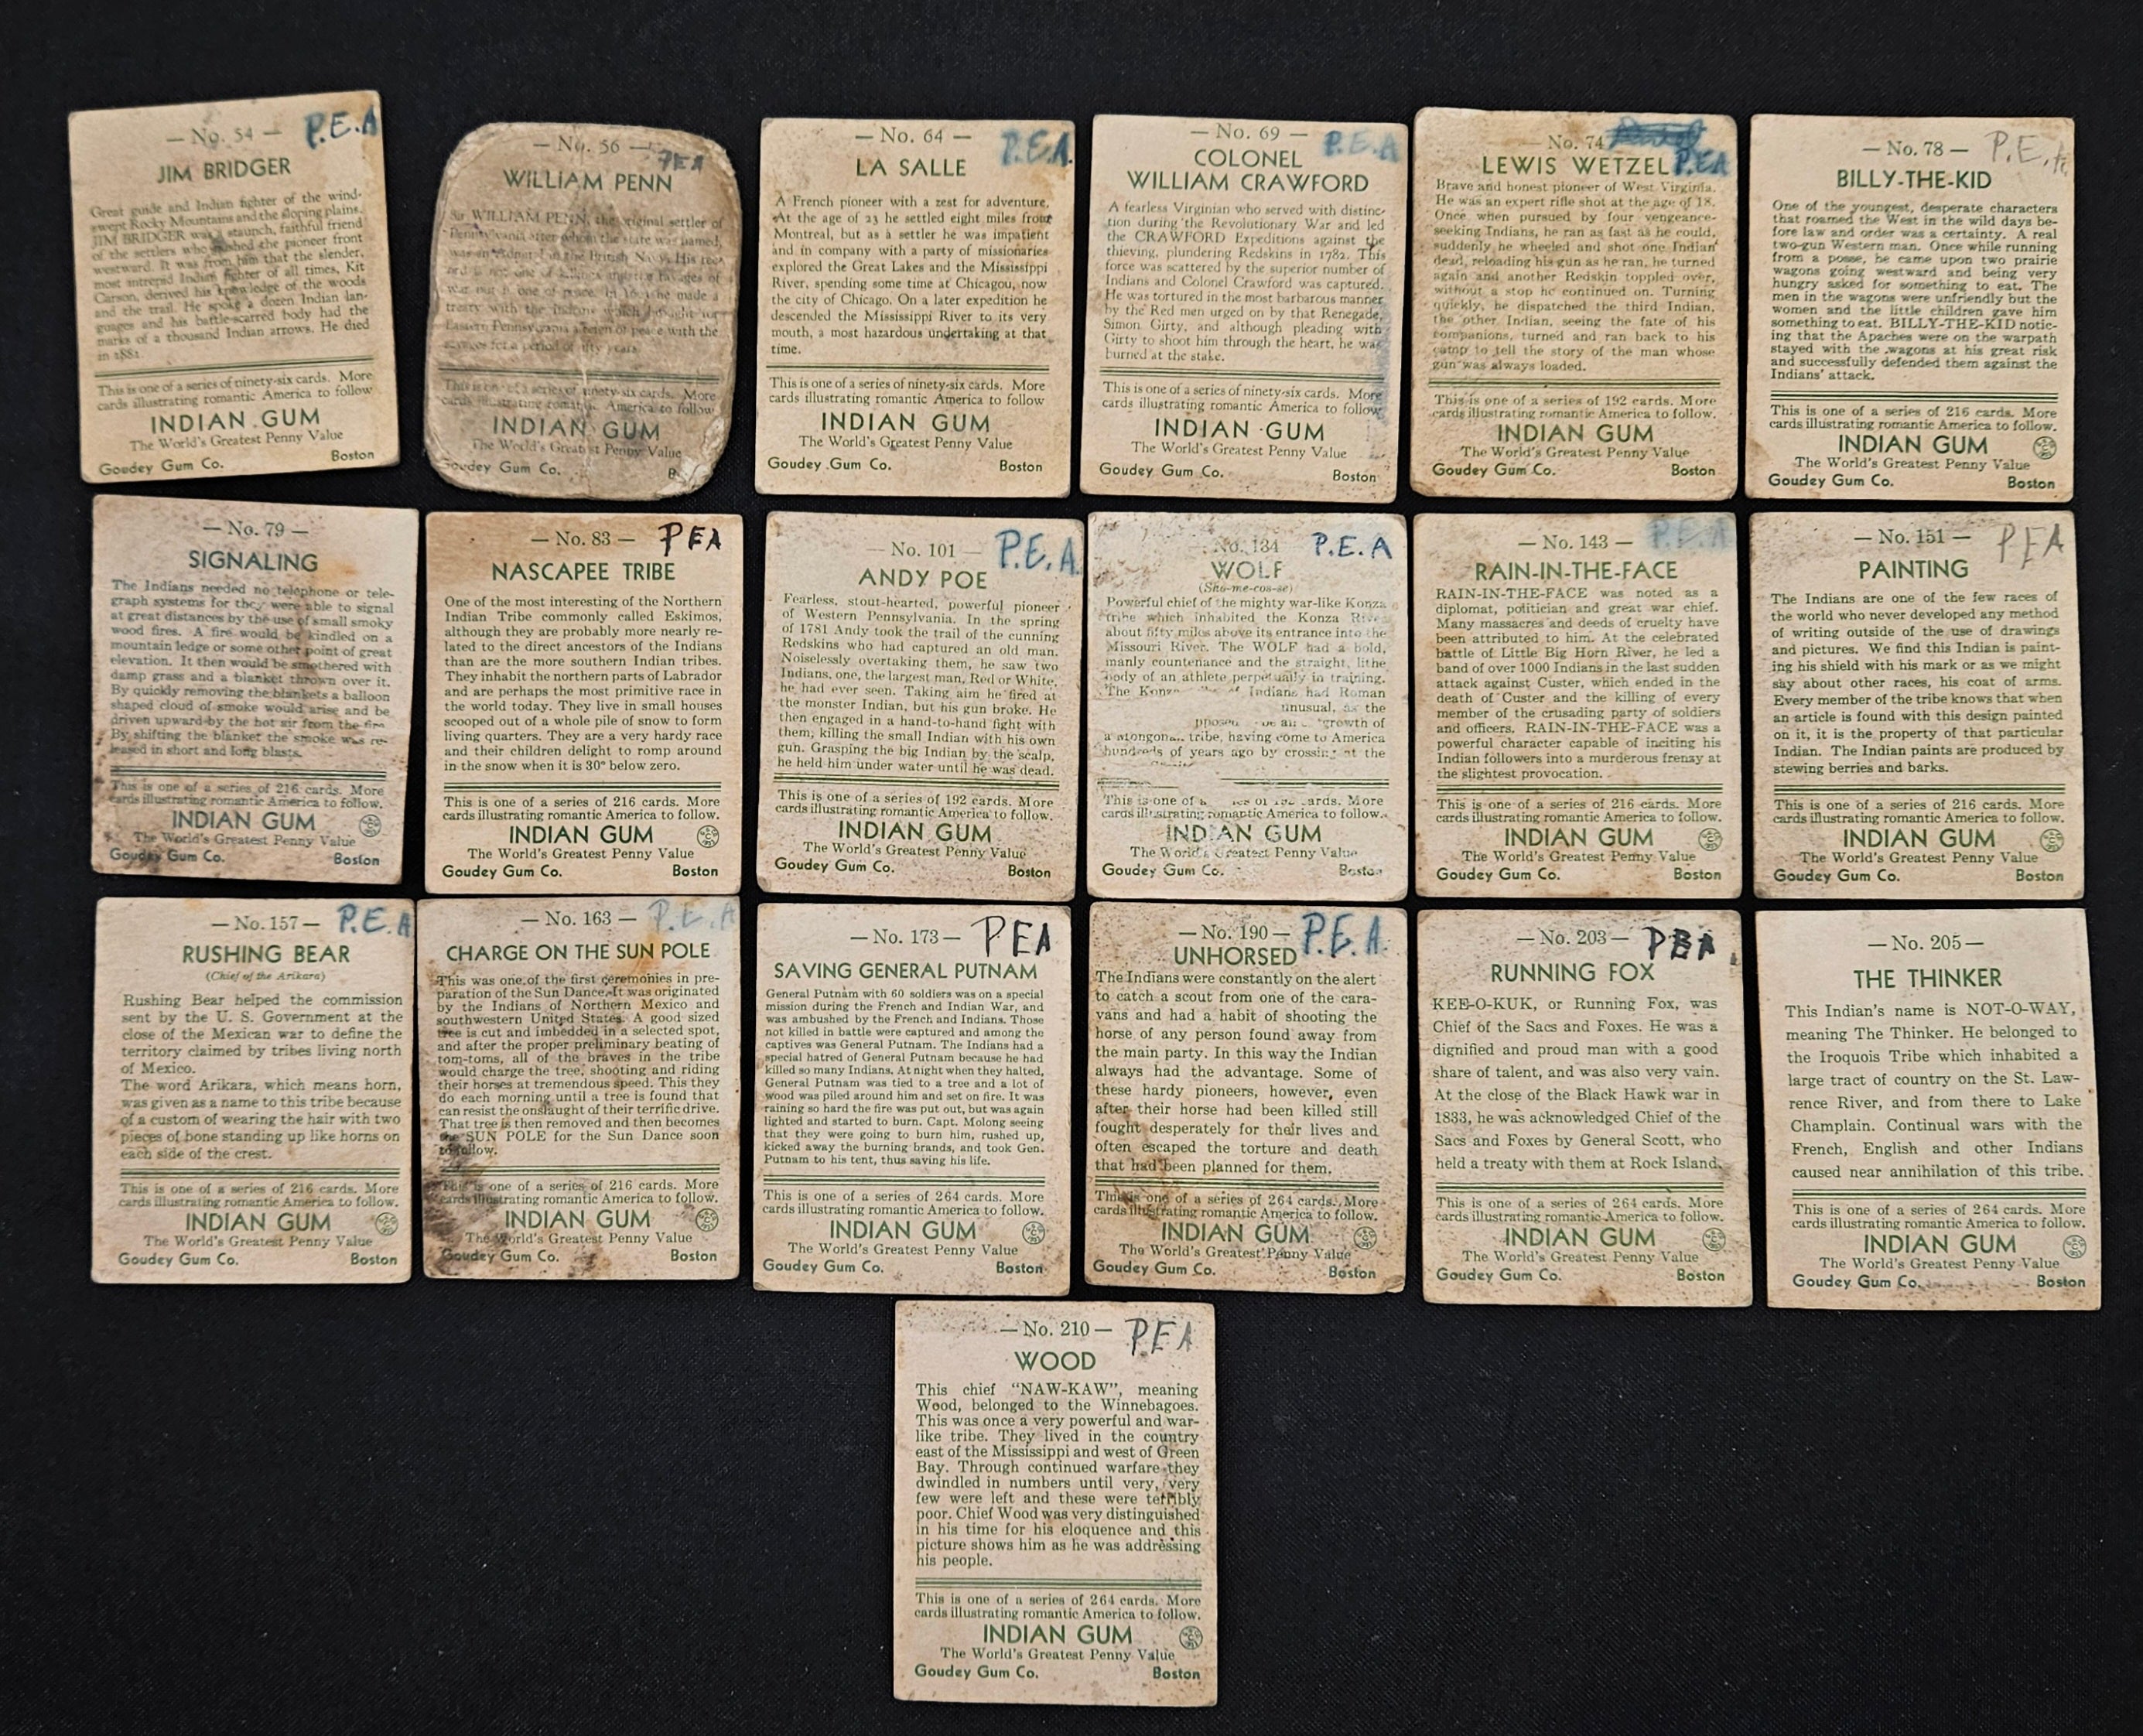 — No. 54 — P.E.A
JIM BRIDGER
Great guide and Indian fighter of the wind-
swept Rocky Mountains and the sloping plains.
JIM BRIDGER was a staunch, faithful friend
of the settlers who pushed the pioneer front
westward. It was from him that the slender,
most intrepid Indian fighter of all times, Kit
Carson, derived his knowledge of the woods
and the trail. He spoke a dozen Indian lan-
guages and his battle-scarred body had the
marks of a thousand Indian arrows. He died
in 1881.
This is one of a series of ninety-six cards. More
cards illustrating romantic America to follow
INDIAN GUM
The World's Greatest Penny Value
Goudey Gum Co. Boston
— No. 56 — PEA
WILLIAM PENN
Sir WILLIAM PENN, the original settler of
Pennsylvania after whom the state was named,
was an Admiral in the British Navy. His rec-
ord is not one of
war but is one of peace. In he made a
treaty with the Indians which brought to
Eastern Pennsylvania a reign of peace with the
savages for a period of fifty years.
This is one of a series of ninety-six cards. More
cards illustrating romantic America to follow
INDIAN GUM
The World's Greatest Penny Value
Goudey Gum Co.
— No. 64 — P.E.A
LA SALLE
A French pioneer with a zest for adventure.
At the age of 23 he settled eight miles from
Montreal, but as a settler he was impatient
and in company with a party of missionaries
explored the Great Lakes and the Mississippi
River, spending some time at Chicagou, now
the city of Chicago. On a later expedition he
descended the Mississippi River to its very
mouth, a most hazardous undertaking at that
time.
This is one of a series of ninety-six cards. More
cards illustrating romantic America to follow
INDIAN GUM
The World's Greatest Penny Value
Goudey Gum Co. Boston
— No. 69 — P.E.A
COLONEL
WILLIAM CRAWFORD
A fearless Virginian who served with distinc-
tion during the Revolutionary War and led
the CRAWFORD Expeditions against the
thieving, plundering Redskins in 1782. This
force was scattered by the superior number of
Indians and Colonel Crawford was captured.
He was tortured in the most barbarous manner
by the Red men urged on by that Renegade,
Simon Girty, and although pleading with
Girty to shoot him through the heart, he was
burned at the stake.
This is one of a series of ninety-six cards. More
cards illustrating romantic America to follow
INDIAN GUM
The World's Greatest Penny Value
Goudey Gum Co. Boston
— No. 74
LEWIS WETZEL P.E.A
Brave and honest pioneer of West Virginia.
He was an expert rifle shot at the age of 18.
Once when pursued by four vengeance-
seeking Indians, he ran as fast as he could,
suddenly he wheeled and shot one Indian
dead, reloading his gun as he ran, he turned
again and another Redskin toppled over,
without a stop he continued on. Turning
quickly, he dispatched the third Indian,
the other Indian, seeing the fate of his
companions, turned and ran back to his
camp to tell the story of the man whose
gun was always loaded.
This is one of a series of 192 cards. More
cards illustrating romantic America to follow.
INDIAN GUM
The World's Greatest Penny Value
Goudey Gum Co. Boston
— No. 78 — P.E.A.
BILLY-THE-KID
One of the youngest, desperate characters
that roamed the West in the wild days be-
fore law and order was a certainty. A real
two-gun Western man. Once while running
from a posse, he came upon two prairie
wagons going westward and being very
hungry asked for something to eat. The
men in the wagons were unfriendly but the
women and the little children gave him
something to eat. BILLY-THE-KID notic-
ing that the Apaches were on the warpath
stayed with the wagons at his great risk
and successfully defended them against the
Indians' attack.
This is one of a series of 216 cards. More
cards illustrating romantic America to follow.
INDIAN GUM
The World's Greatest Penny Value
Goudey Gum Co. Boston
— No. 79 —
SIGNALING
The Indians needed no telephone or tele-
graph systems for they were able to signal
at great distances by the use of small smoky
wood fires. A fire would be kindled on a
mountain ledge or some other point of great
elevation. It then would be smothered with
damp grass and a blanket thrown over it.
By quickly removing the blankets a balloon
shaped cloud of smoke would arise and be
driven upward by the hot air from the fire
By shifting the blanket the smoke was re-
leased in short and long blasts.
This is one of a series of 216 cards. More
cards illustrating romantic America to follow.
INDIAN GUM
The World's Greatest Penny Value
Goudey Gum Co. Boston
— No. 83 — PEA
NASCAPEE TRIBE
One of the most interesting of the Northern
Indian Tribe commonly called Eskimos,
although they are probably more nearly re-
lated to the direct ancestors of the Indians
than are the more southern Indian tribes.
They inhabit the northern parts of Labrador
and are perhaps the most primitive race in
the world today. They live in small houses
scooped out of a whole pile of snow to form
living quarters. They are a very hardy race
and their children delight to romp around
in the snow when it is 30° below zero.
This is one of a series of 216 cards. More
cards illustrating romantic America to follow.
INDIAN GUM
The World's Greatest Penny Value
Goudey Gum Co. Boston
— No. 101 — P.E.A.
ANDY POE
Fearless, stout-hearted, powerful pioneer
of Western Pennsylvania. In the spring
of 1781 Andy took the trail of the cunning
Redskins who had captured an old man.
Noiselessly overtaking them, he saw two
Indians, one, the largest man, Red or White,
he had ever seen. Taking aim he fired at
the monster Indian, but his gun broke. He
then engaged in a hand-to-hand fight with
them; killing the small Indian with his own
gun. Grasping the big Indian by the scalp,
he held him under water until he was dead.
This is one of a series of 192 cards. More
cards illustrating romantic America to follow.
INDIAN GUM
The World's Greatest Penny Value
Goudey Gum Co. Boston
No. 134 P.E.A
WOLF
(Sho-me-cos-se)
Powerful chief of the mighty war-like Konza
tribe which inhabited the Konza River
about fifty miles above its entrance into the
Missouri River. The WOLF had a bold,
manly countenance and the straight, lithe
body of an athlete perpetually in training.
The Konza of Indians had Roman
unusual, as the
growth of
a tribe, having come to America
hundreds of years ago by crossing at the
This is one of a cards. More
cards illustrating romantic America to follow.
INDIAN GUM
The World's Greatest Penny Value
Goudey Gum Co. Boston
— No. 143 — P.E.A
RAIN-IN-THE-FACE
RAIN-IN-THE-FACE was noted as a
diplomat, politician and great war chief.
Many massacres and deeds of cruelty have
been attributed to him. At the celebrated
battle of Little Big Horn River, he led a
band of over 1000 Indians in the last sudden
attack against Custer, which ended in the
death of Custer and the killing of every
member of the crusading party of soldiers
and officers. RAIN-IN-THE-FACE was a
powerful character capable of inciting his
Indian followers into a murderous frenzy at
the slightest provocation.
This is one of a series of 216 cards. More
cards illustrating romantic America to follow.
INDIAN GUM
The World's Greatest Penny Value
Goudey Gum Co. Boston
— No. 151 — PEA
PAINTING
The Indians are one of the few races of
the world who never developed any method
of writing outside of the use of drawings
and pictures. We find this Indian is paint-
ing his shield with his mark or as we might
say about other races, his coat of arms.
Every member of the tribe knows that when
an article is found with this design painted
on it, it is the property of that particular
Indian. The Indian paints are produced by
stewing berries and barks.
This is one of a series of 216 cards. More
cards illustrating romantic America to follow.
INDIAN GUM
The World's Greatest Penny Value
Goudey Gum Co. Boston
— No. 157 — P.E.A
RUSHING BEAR
(Chief of the Arikara)
Rushing Bear helped the commission
sent by the U. S. Government at the
close of the Mexican war to define the
territory claimed by tribes living north
of Mexico.
The word Arikara, which means horn,
was given as a name to this tribe because
of a custom of wearing the hair with two
pieces of bone standing up like horns on
each side of the crest.
This is one of a series of 216 cards. More
cards illustrating romantic America to follow.
INDIAN GUM
The World's Greatest Penny Value
Goudey Gum Co. Boston
— No. 163 — P.E.A
CHARGE ON THE SUN POLE
This was one of the first ceremonies in pre-
paration of the Sun Dance. It was originated
by the Indians of Northern Mexico and
southwestern United States. A good sized
tree is cut and imbedded in a selected spot,
and after the proper preliminary beating of
tom-toms, all of the braves in the tribe
would charge the tree, shooting and riding
their horses at tremendous speed. This they
do each morning until a tree is found that
can resist the onslaught of their terrific drive.
That tree is then removed and then becomes
the SUN POLE for the Sun Dance soon
to follow.
This is one of a series of 216 cards. More
cards illustrating romantic America to follow.
INDIAN GUM
The World's Greatest Penny Value
Goudey Gum Co. Boston
— No. 173 — PEA
SAVING GENERAL PUTNAM
General Putnam with 60 soldiers was on a special
mission during the French and Indian War, and
was ambushed by the French and Indians. Those
not killed in battle were captured and among the
captives was General Putnam. The Indians had a
special hatred of General Putnam because he had
killed so many Indians. At night when they halted,
General Putnam was tied to a tree and a lot of
wood was piled around him and set on fire. It was
raining so hard the fire was put out, but was again
lighted and started to burn. Capt. Molong seeing
that they were going to burn him, rushed up,
kicked away the burning brands, and took Gen.
Putnam to his tent, thus saving his life.
This is one of a series of 264 cards. More
cards illustrating romantic America to follow.
INDIAN GUM
The World's Greatest Penny Value
Goudey Gum Co. Boston
— No. 190 — P.E.A.
UNHORSED
The Indians were constantly on the alert
to catch a scout from one of the cara-
vans and had a habit of shooting the
horse of any person found away from
the main party. In this way the Indian
always had the advantage. Some of
these hardy pioneers, however, even
after their horse had been killed still
fought desperately for their lives and
often escaped the torture and death
that had been planned for them.
This is one of a series of 264 cards. More
cards illustrating romantic America to follow.
INDIAN GUM
The World's Greatest Penny Value
Goudey Gum Co. Boston
— No. 203 — PEA.
RUNNING FOX
KEE-O-KUK, or Running Fox, was
Chief of the Sacs and Foxes. He was a
dignified and proud man with a good
share of talent, and was also very vain.
At the close of the Black Hawk war in
1833, he was acknowledged Chief of the
Sacs and Foxes by General Scott, who
held a treaty with them at Rock Island.
This is one of a series of 264 cards. More
cards illustrating romantic America to follow.
INDIAN GUM
The World's Greatest Penny Value
Goudey Gum Co. Boston
— No. 205 —
THE THINKER
This Indian's name is NOT-O-WAY,
meaning The Thinker. He belonged to
the Iroquois Tribe which inhabited a
large tract of country on the St. Law-
rence River, and from there to Lake
Champlain. Continual wars with the
French, English and other Indians
caused near annihilation of this tribe.
This is one of a series of 264 cards. More
cards illustrating romantic America to follow.
INDIAN GUM
The World's Greatest Penny Value
Goudey Gum Co. Boston
— No. 210 — PEA
WOOD
This chief “NAW-KAW”, meaning
Wood, belonged to the Winnebagoes.
This was once a very powerful and war-
like tribe. They lived in the country
east of the Mississippi and west of Green
Bay. Through continued warfare they
dwindled in numbers until very, very
few were left and these were terribly
poor. Chief Wood was very distinguished
in his time for his eloquence and this
picture shows him as he was addressing
his people.
This is one of a series of 264 cards. More
cards illustrating romantic America to follow.
INDIAN GUM
The World's Greatest Penny Value
Goudey Gum Co. Boston